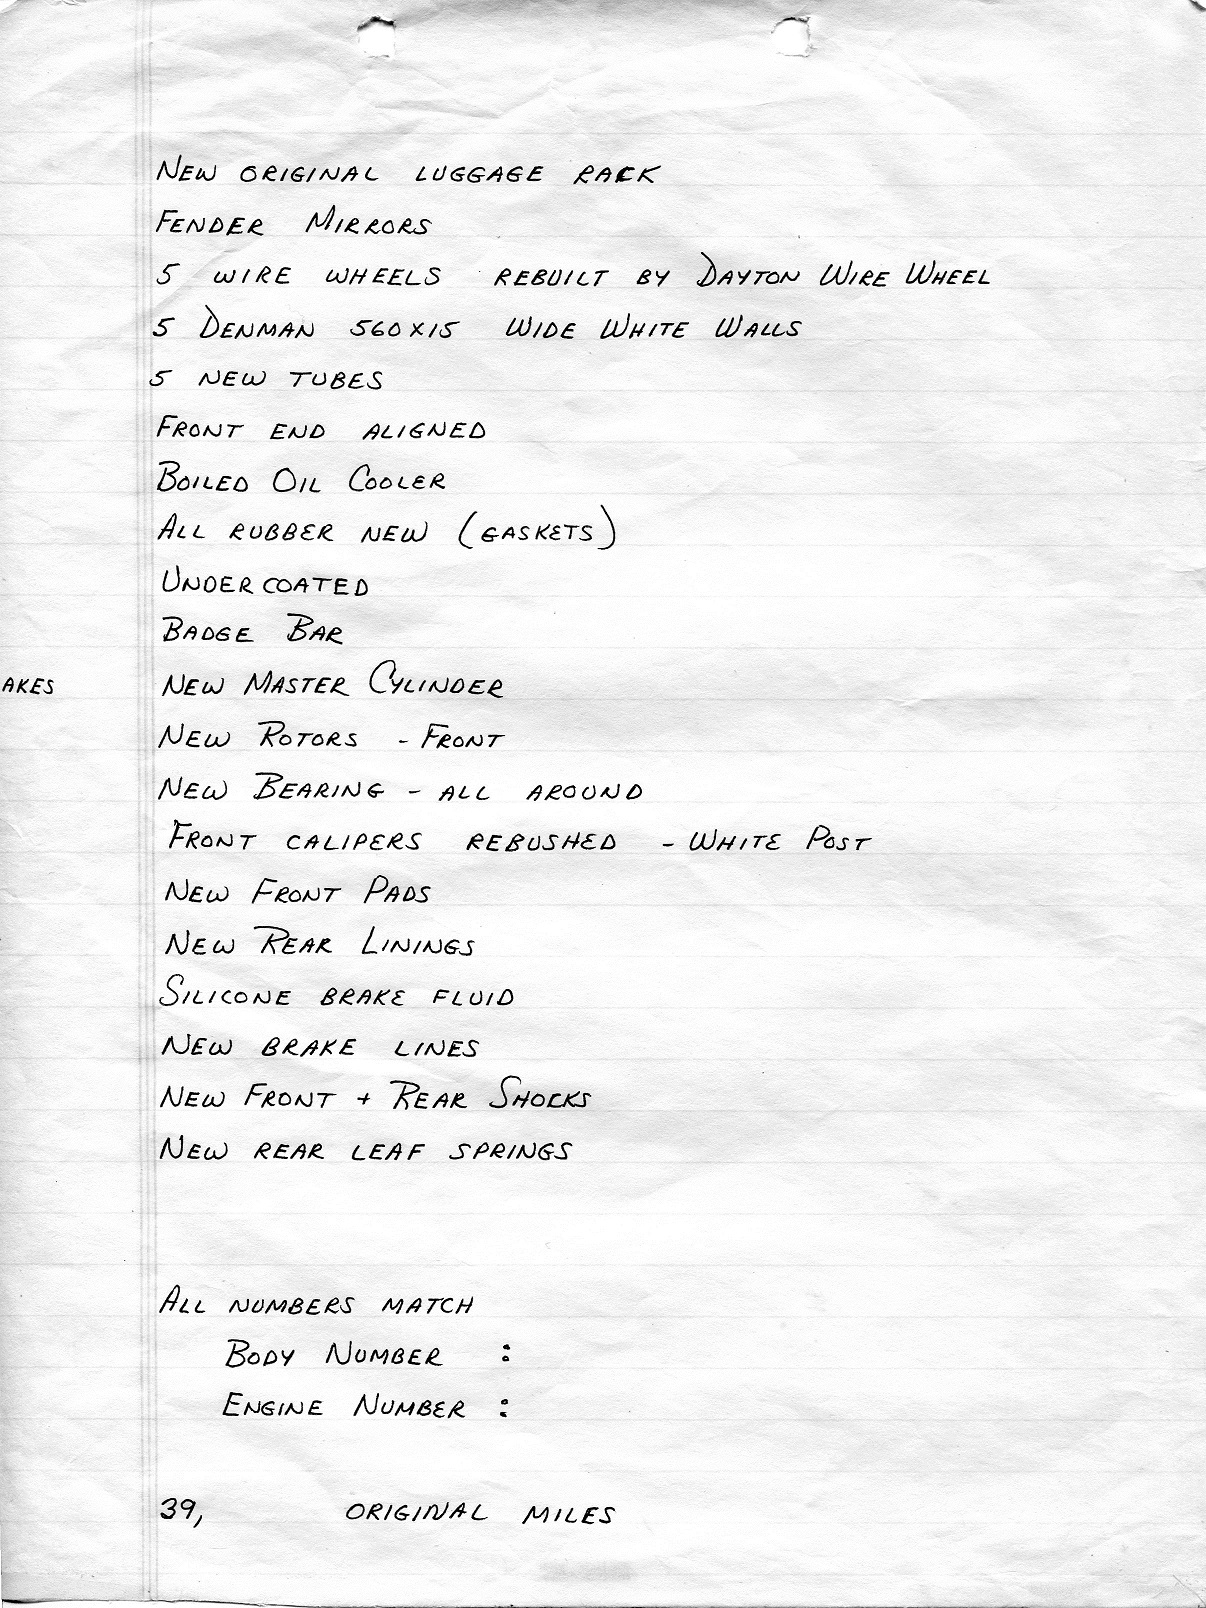 NEW ORIGINAL LUGGAGE RACK
FENDER MIRRORS
5 WIRE WHEELS REBUILT BY DAYTON WIRE WHEEL
5 DENMAN 560X15 WIDE WHITE WALLS
5 NEW TUBES
FRONT END ALIGNED
BOILED OIL COOLER
ALL RUBBER NEW (GASKETS)
UNDERCOATED
BADGE BAR
AKES NEW MASTER CYLINDER
NEW ROTORS - FRONT
NEW BEARING - ALL AROUND
FRONT CALIPERS REBUSHED - WHITE POST
NEW FRONT PADS
NEW REAR LININGS
SILICONE BRAKE FLUID
NEW BRAKE LINES
NEW FRONT + REAR SHOCKS
NEW REAR LEAF SPRINGS
ALL NUMBERS MATCH
BODY NUMBER :
ENGINE NUMBER :
39, ORIGINAL MILES